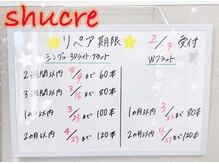 shucre
リペア期限 2/3 受付
シングル・3Dライト・フラット Wフラット
2週間以内 3/4まで 60本
3週間以内 3/16まで 80本
1カ月以内 3/23まで 100本 1カ月以内 3/23まで 80本
2カ月以内 4/23まで 120本 2カ月以内 4/23まで 120本